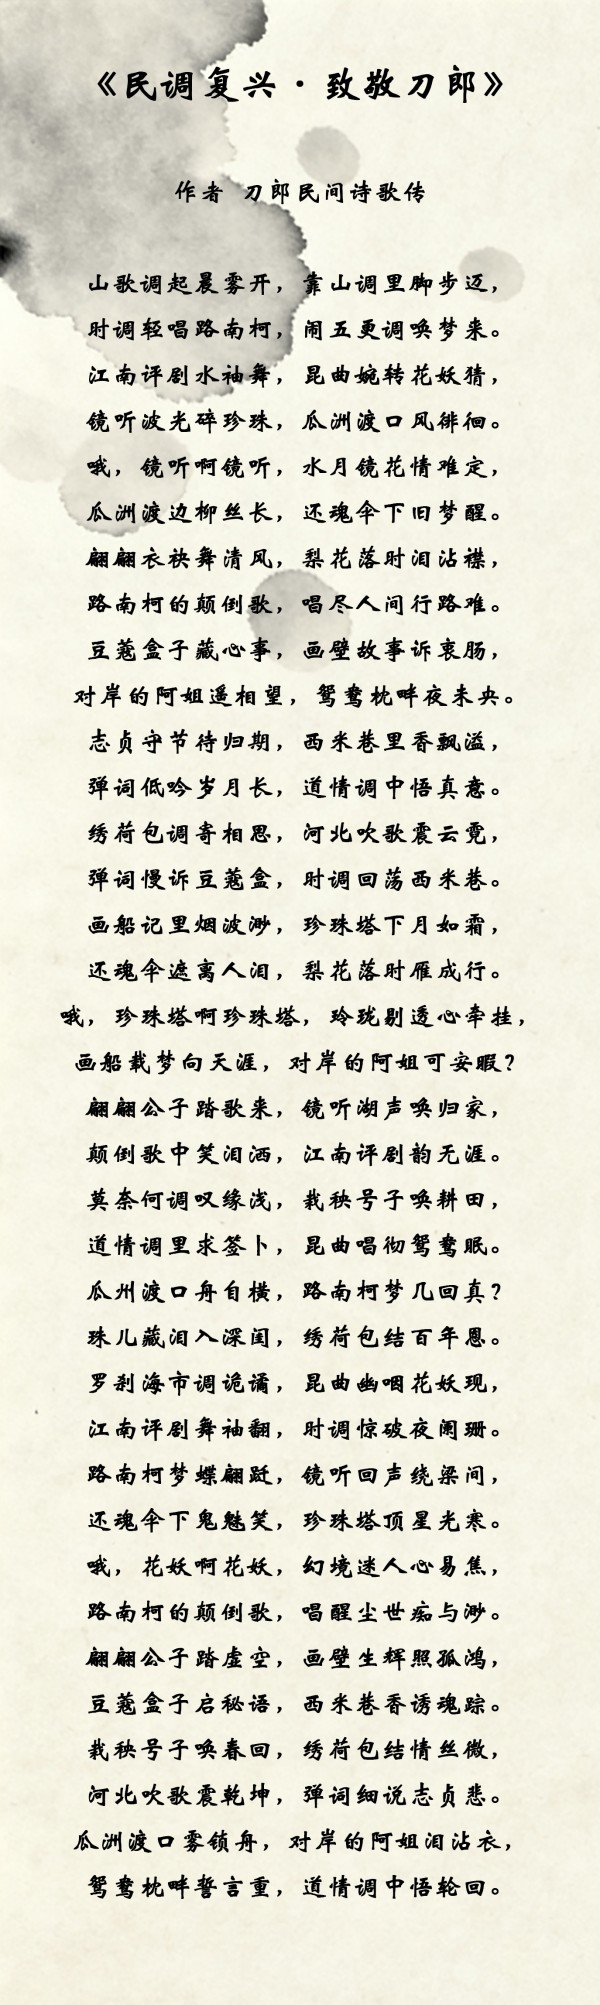 《民调复兴·致敬刀郎》
作者 刀郎民间诗歌传
山歌调起晨雾开，靠山调里脚步迈，
时调轻唱路南柯，闹五更调唤梦来。
江南评剧水袖舞，昆曲婉转花妖猜，
镜听波光碎珍珠，瓜洲渡口风徘徊。
哦，镜听啊镜听，水月镜花情难定，
瓜洲渡边柳丝长，还魂伞下旧梦醒。
翩翩衣袂舞清风，梨花落时泪沾襟，
路南柯的颠倒歌，唱尽人间行路难。
豆蔻盒子藏心事，画壁故事诉衷肠，
对岸的阿姐遥相望，鸳鸯枕畔夜未央。
志贞守节待归期，西米巷里香飘溢，
弹词低吟岁月长，道情调中悟真意。
绣荷包调寄相思，河北吹歌震云霓，
弹词慢诉豆蔻盒，时调回荡西米巷。
画船记里烟波渺，珍珠塔下月如霜，
还魂伞遮离人泪，梨花落时雁成行。
哦，珍珠塔啊珍珠塔，玲珑剔透心牵挂，
画船载梦向天涯，对岸的阿姐可安暇？
翩翩公子踏歌来，镜听湖声唤归家，
颠倒歌中笑泪洒，江南评剧韵无涯。
莫奈何调叹缘浅，栽秧号子唤耕田，
道情调里求签卜，昆曲唱彻鸳鸯眠。
瓜州渡口舟自横，路南柯梦几回真？
珠儿藏泪入深闺，绣荷包结百年恩。
罗刹海市调诡谲，昆曲幽咽花妖现，
江南评剧舞袖翻，时调惊破夜阑珊。
路南柯梦蝶翩跹，镜听回声绕梁间，
还魂伞下鬼魅笑，珍珠塔顶星光寒。
哦，花妖啊花妖，幻境迷人心易焦，
路南柯的颠倒歌，唱醒尘世痴与渺。
翩翩公子踏虚空，画壁生辉照孤鸿，
豆蔻盒子启秘语，西米巷香诱魂踪。
栽秧号子唤春回，绣荷包结情丝微，
河北吹歌震乾坤，弹词细说志贞悲。
瓜洲渡口雾锁舟，对岸的阿姐泪沾衣，
鸳鸯枕畔誓言重，道情调中悟轮回。